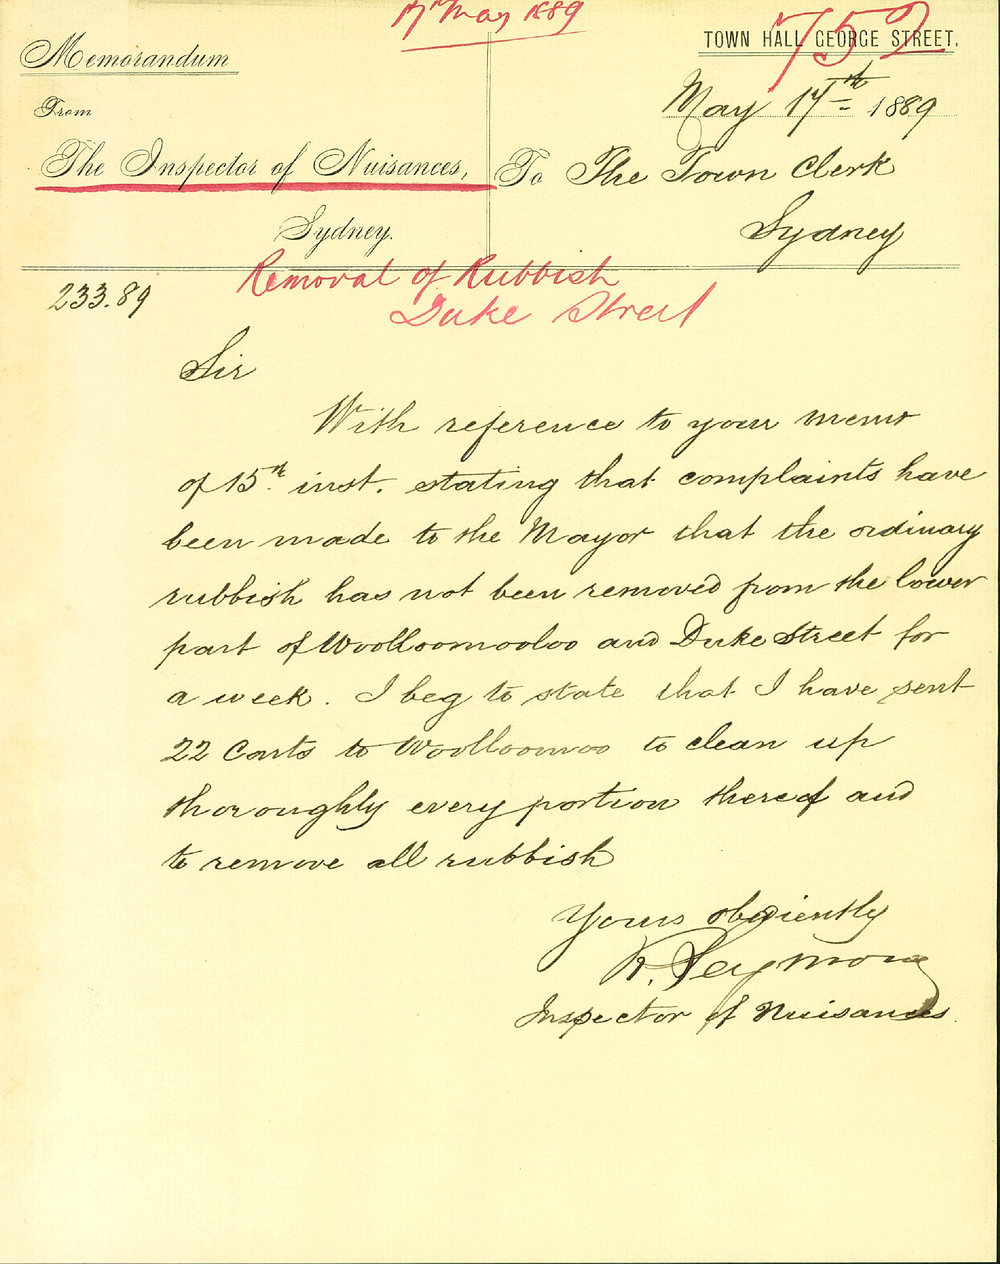 17 May 1889
752
Memorandum
From
The Inspector of Nuisances,
Sydney.
TOWN HALL GEORGE STREET.
May 17th 1889
To The Town Clerk
Sydney
233.89
Removal of Rubbish
Duke Street
Sir
With reference to your memo
of 15th inst. stating that complaints have
been made to the Mayor that the ordinary
rubbish has not been removed from the lower
part of Woolloomooloo and Duke Street for
a week. I beg to state that I have sent
22 Carts to Woolloomoo to clean up
thoroughly every portion thereof and
to remove all rubbish
Yours obediently
R. Seymour
Inspector of Nuisances